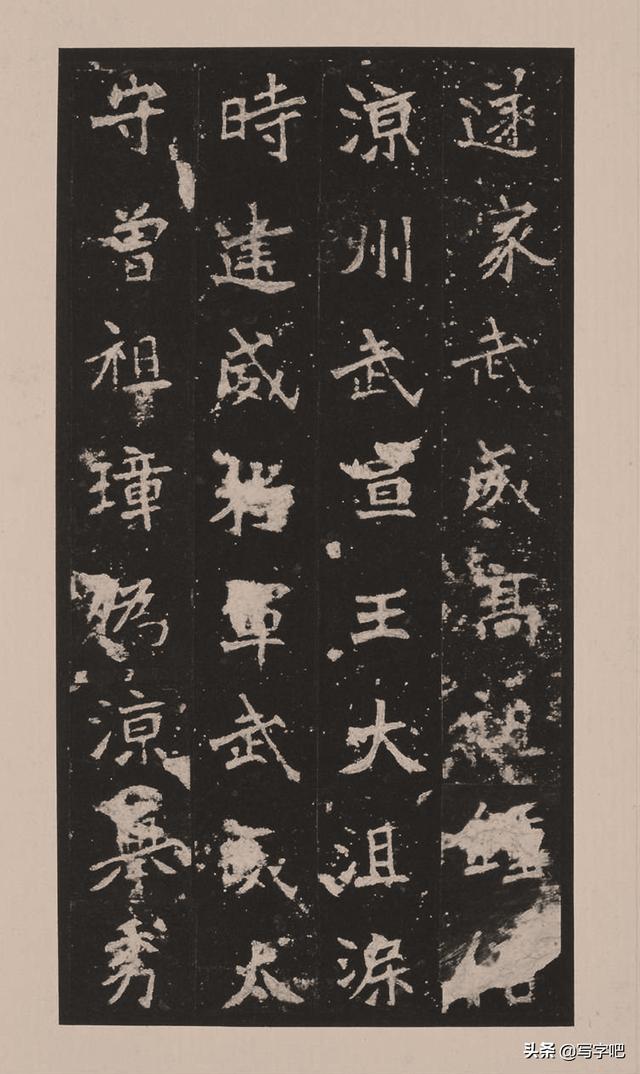 遂家武威高祖
涼州武宣王大沮渠
時建威將軍武威太
守曾祖璋偽涼舉秀
头条 @写字吧